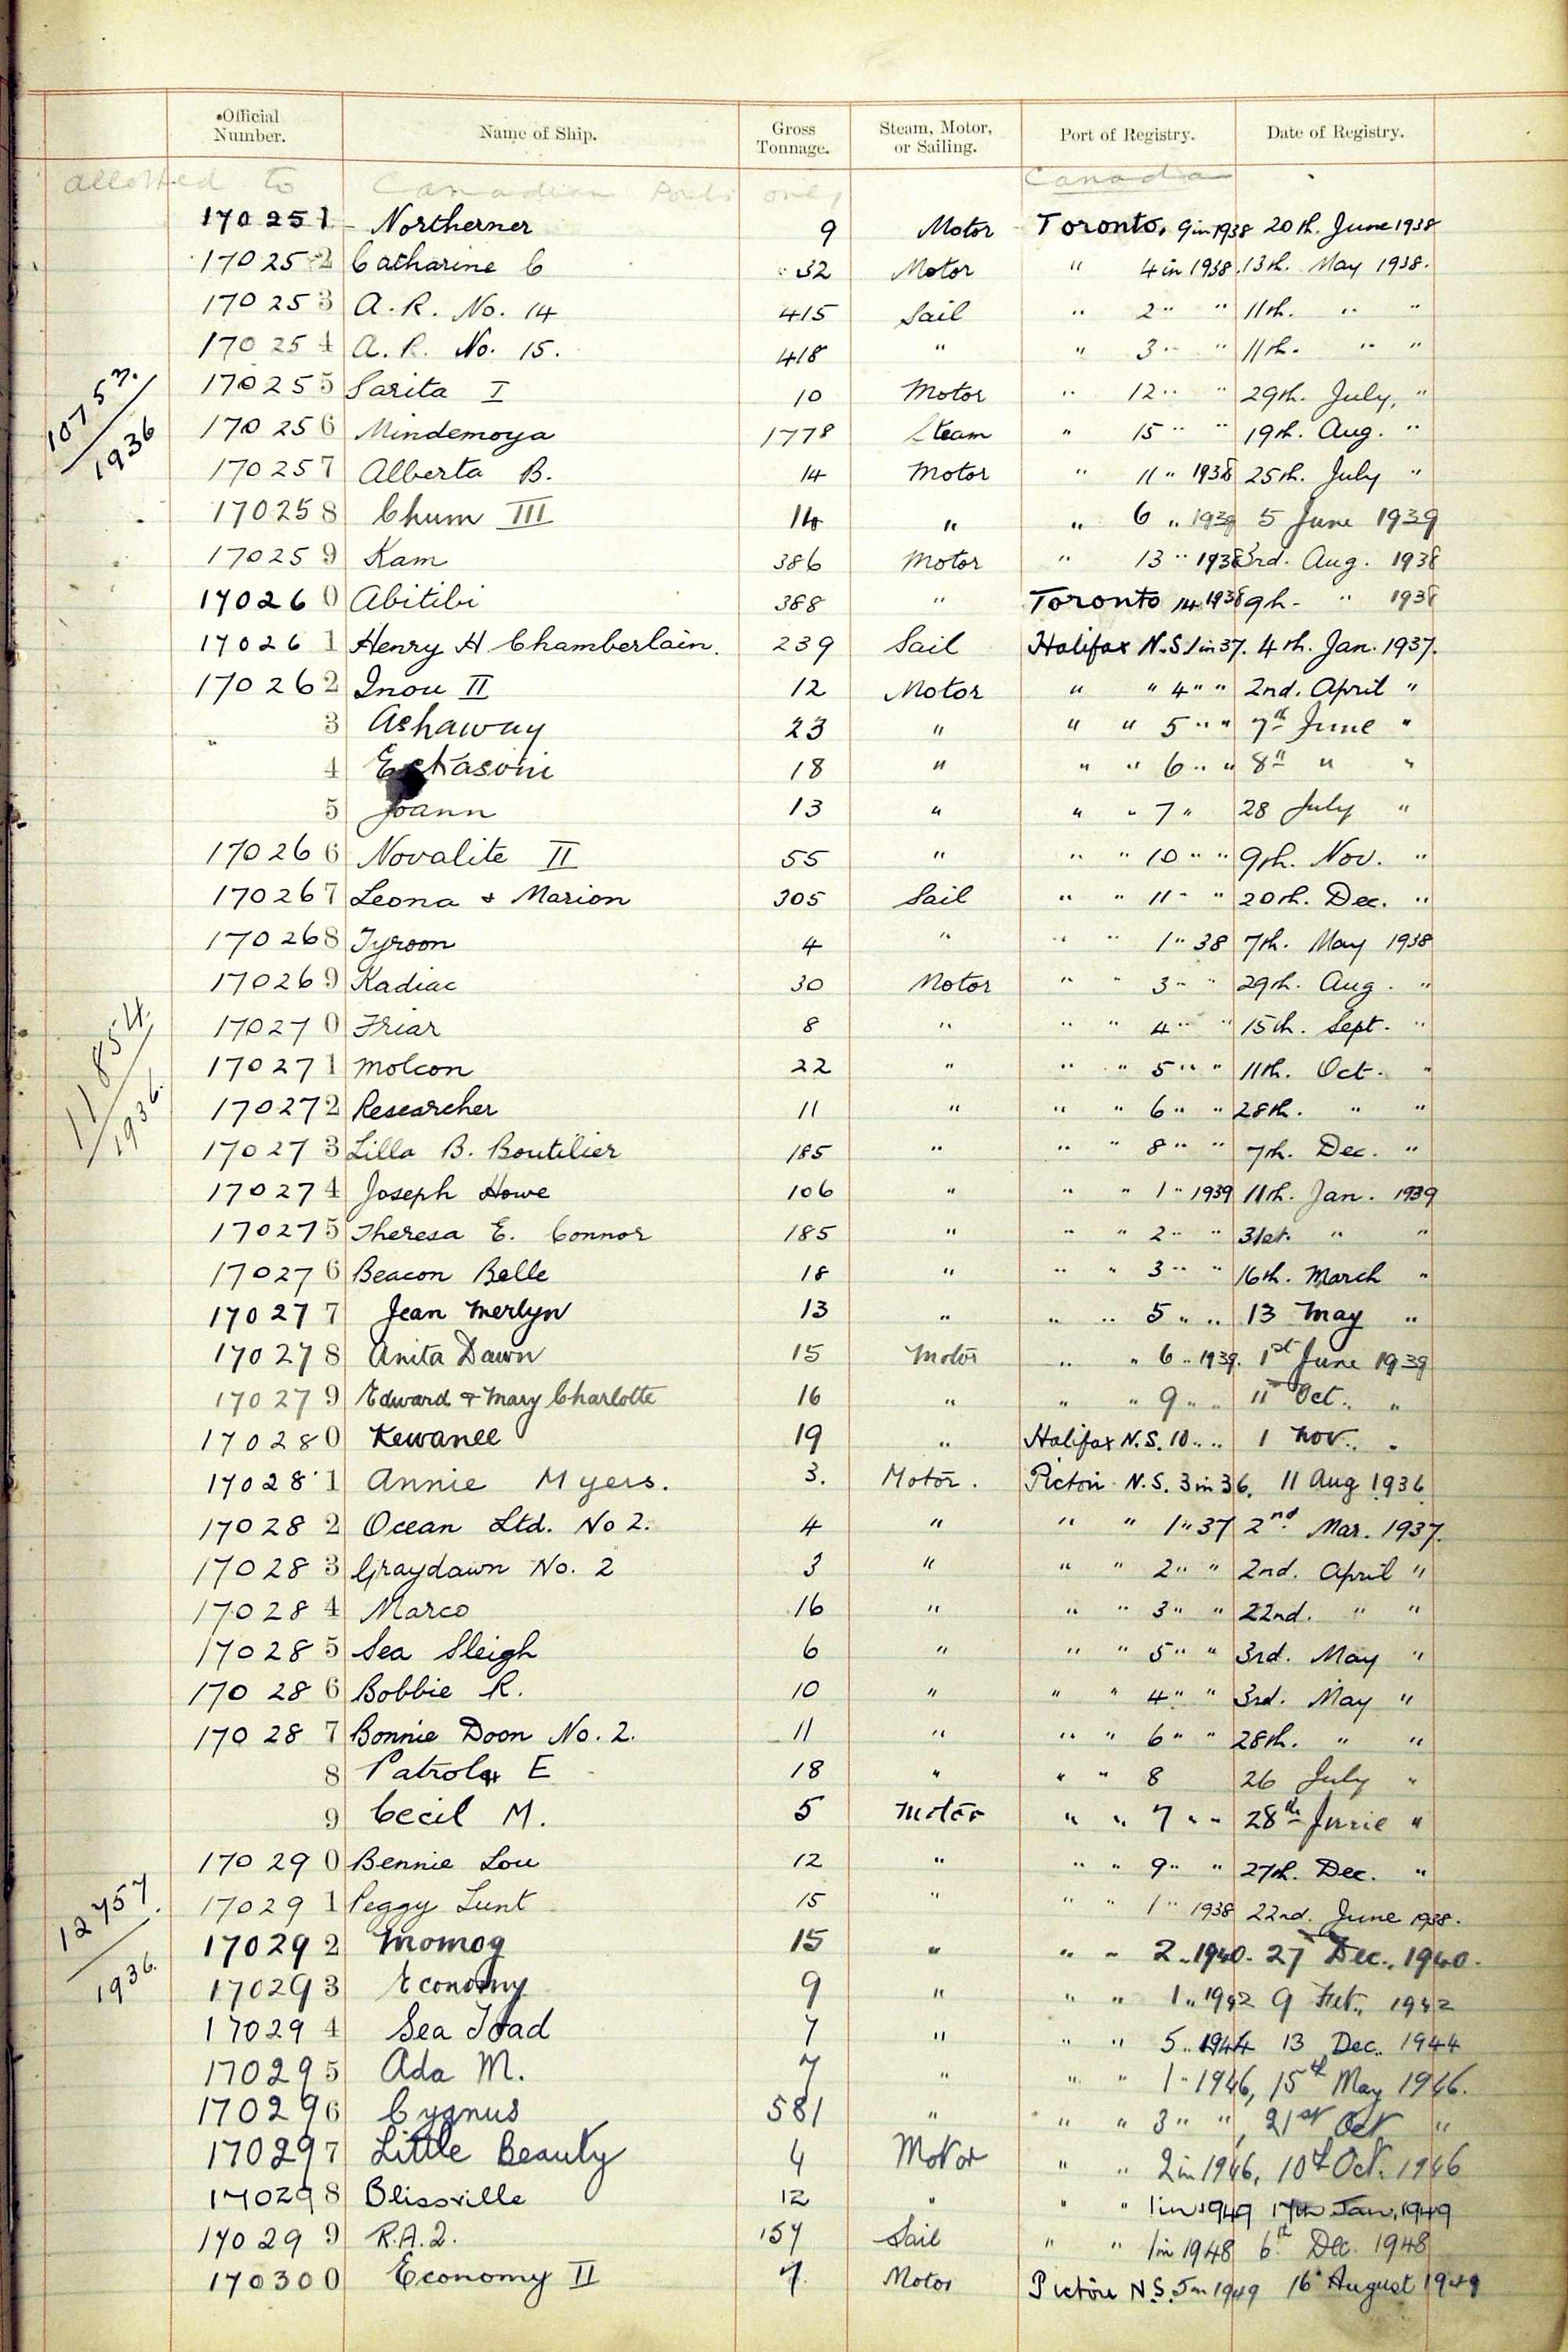 Official Number. Name of Ship. Gross Tonnage. Steam, Motor, or Sailing. Port of Registry. Date of Registry.
allotted to Canadian Ports only Canada
170251 Northerner 9 Motor Toronto. 9 in 1938 20th. June 1938
170252 Catharine C 32 Motor " 4 in 1938. 13th. May 1938.
170253 A. R. No. 14 415 Sail " 2 " " 11th. " "
170254 A. R. No. 15. 418 " " 3 " " 11th. " "
170255 Sarita I 10 Motor " 12 " " 29th. July, "
10753. / 1936
170256 Mindemoya 1778 Steam " 15 " " 19th. Aug. "
170257 Alberta B. 14 Motor " 11 " 1938 25th. July "
170258 Chum III " " 6 " 1939 5 June 1939
170259 Kam 386 Motor " 13 " 1938 3rd. Aug. 1938
170260 Abitibi 388 " Toronto 14 1938 9h. " 1938
170261 Henry H Chamberlain. 239 Sail Halifax N.S. 1 in 37. 4th. Jan. 1937.
170262 Inou II 12 Motor " " 4 " " 2nd. April "
3 Ashaway 23 " " " 5 " " 7th June "
4 18 " " " 6 " " 8th " "
5 Joann 13 " " " 7 " 28 July "
170266 Novalite II 55 " " " 10 " " 9th. Nov. "
170267 Leona & Marion 305 Sail " " 11 " " 20th. Dec. "
170268 Tyroon 4 " " " 1 " 38 7th. May 1938
170269 Kadiac 30 Motor " " 3 " " 29th. Aug. "
170270 Friar 8 " " " 4 " " 15th. Sept. "
11854. / 1936.
170271 Molcon 22 " " " 5 " " 11th. Oct. "
170272 Researcher 11 " " " 6 " " 28th. " "
170273 Lilla B. Boutilier 185 " " " 8 " " 7th. Dec. "
170274 Joseph Howe 106 " " " 1 " 1939 11th. Jan. 1939
170275 Theresa E. Connor 185 " " " 2 " " 31st. " "
170276 Beacon Belle 18 " " " 3 " " 16th. March "
170277 Jean Merlyn 13 " " " 5 " " 13 May "
170278 Anita Dawn 15 Motor " " 6 " 1939. 1st June 1939
170279 Edward & Mary Charlotte 16 " " " 9 " " 11 Oct. "
170280 Kewanee 19 " Halifax N.S. 10 " " 1 Nov. "
170281 Annie Myers. 3. Motor. Pictou N.S. 3 in 36. 11 Aug 1936
170282 Ocean Ltd. No 2. 4 " " " 1 " 37 2nd Mar. 1937.
170283 Graydawn No. 2 3 " " " 2 " " 2nd. April "
170284 Marco 16 " " " 3 " " 22nd. " "
170285 Sea Sleigh 6 " " " 5 " " 3rd. May "
170286 Bobbie R. 10 " " " 4 " " 3rd. May "
170287 Bonnie Doon No. 2. 11 " " " 6 " " 28th. " "
8 E 18 " " " 8 26 July "
9 Cecil M. 5 Motor " " 7 " " 28th June "
170290 Bennie Lou 12 " " " 9 " " 27th. Dec. "
12757. / 1936.
170291 Peggy Lunt 15 " " " 1 " 1938 22nd. June 1938.
170292 Momog 15 " " " 2 " 1940. 27 Dec., 1940.
170293 Economy 9 " " " 1 " 1942 9 Feb., 1942
170294 Sea Toad 7 " " " 5 " 1944 13 Dec. 1944
170295 Ada M. 7 " " " 1 " 1946, 15th May 1946.
170296 Cygnus 581 " " " 3 " ", 21st Oct "
170297 Little Beauty 4 Motor " " 2 in 1946, 10th Oct. 1946
170298 Blissville 12 " " " 1 in 1949 17th Jan, 1949
170299 R.A.2. 157 Sail " " 1 in 1948 6th Dec. 1948
170300 Economy II 7. Motor Pictou N.S. 5 in 1949 16 August 1949